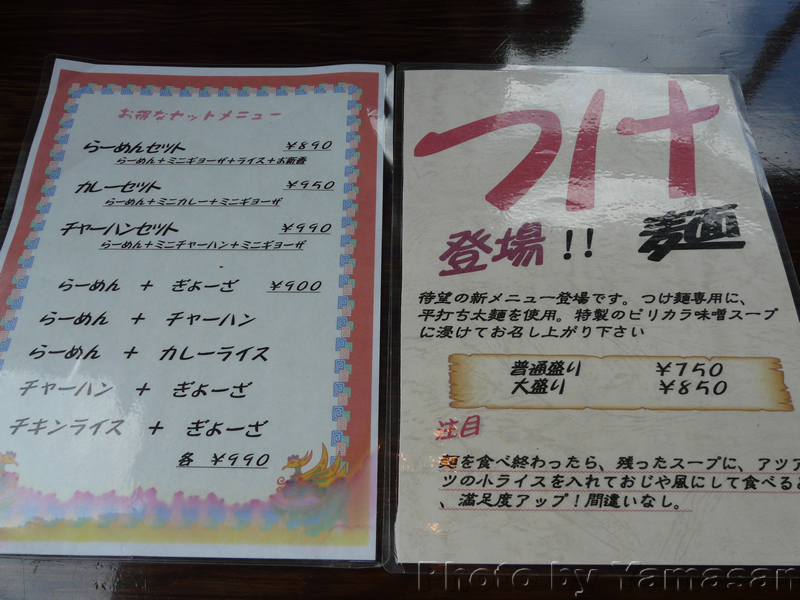 お得なセットメニュー
らーめんセット ￥890
らーめん＋ミニギョーザ＋ライス＋お新香
カレーセット ￥950
らーめん＋ミニカレー＋ミニギョーザ
チャーハンセット ￥990
らーめん＋ミニチャーハン＋ミニギョーザ
らーめん ＋ ぎょーざ ￥900
らーめん ＋ チャーハン
らーめん ＋ カレーライス
チャーハン ＋ ぎょーざ
チキンライス ＋ ぎょーざ
各 ￥990
つけ
登場!! 麺
待望の新メニュー登場です。つけ麺専用に、
平打ち太麺を使用。特製のピリカラ味噌スープ
に浸けてお召し上がり下さい
普通盛り ￥750
大盛り ￥850
注目
麺を食べ終わったら、残ったスープに、アツア
ツの小ライスを入れておじや風にして食べると
、満足度アップ！間違いなし。
Photo by Yamasan